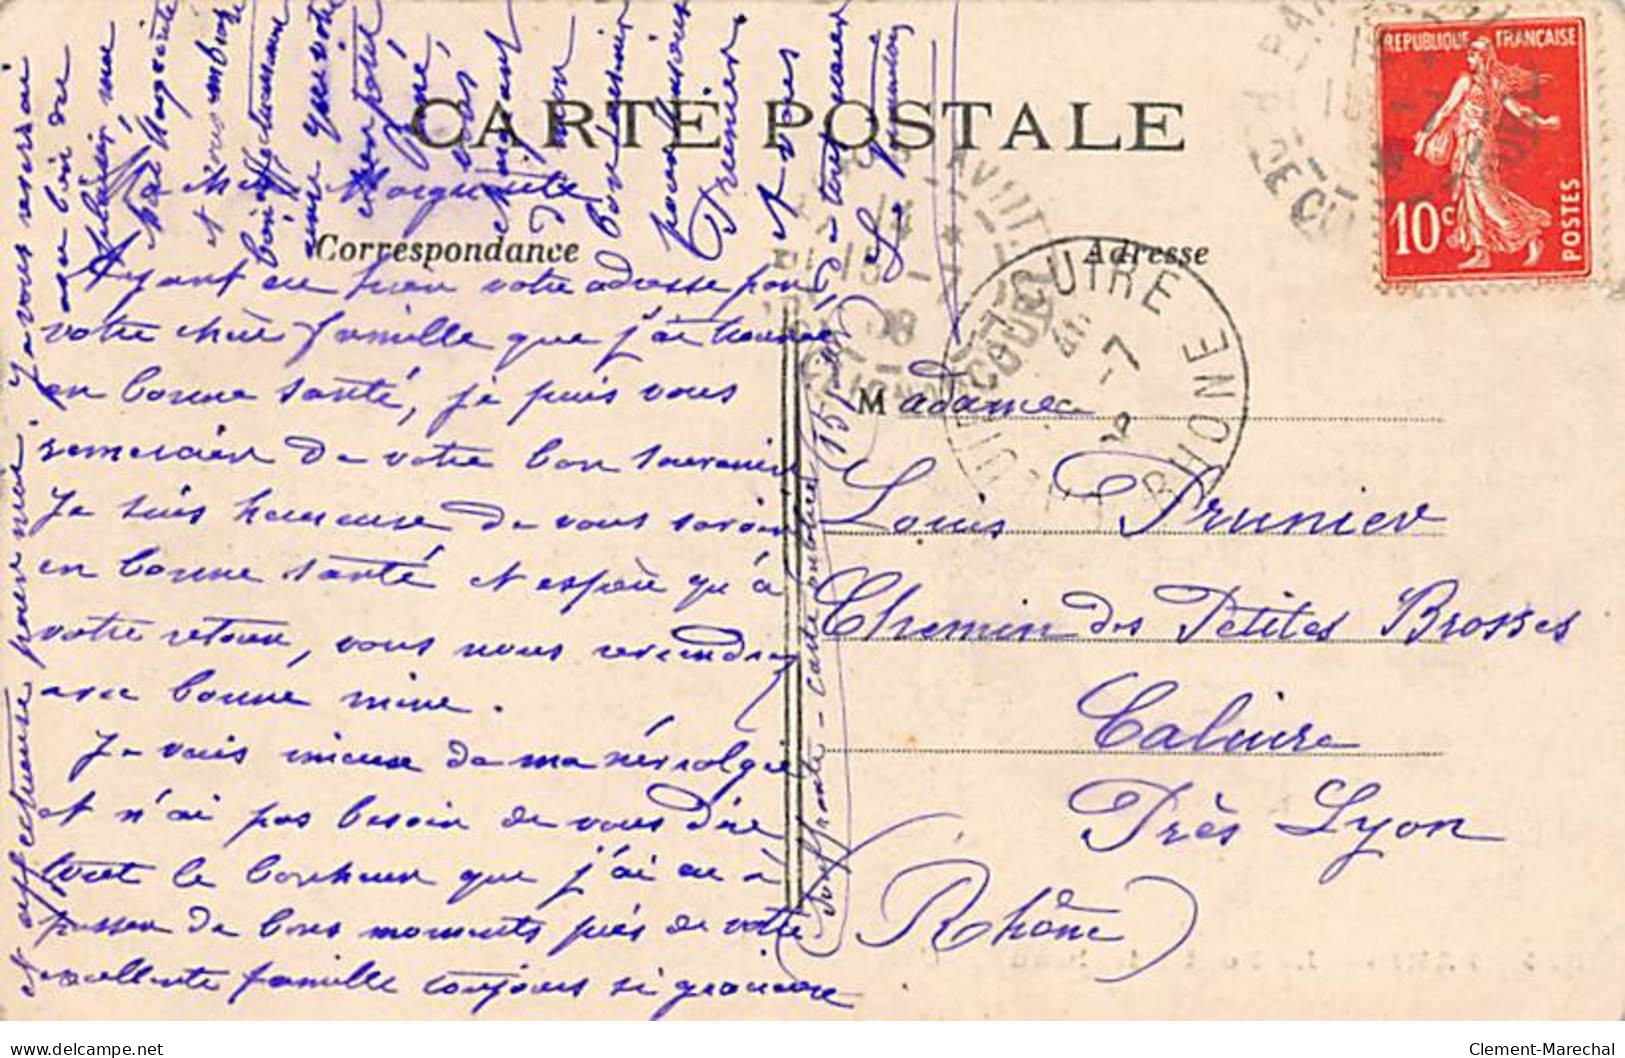 CARTE POSTALE
Correspondance
Adresse
REPUBLIQUE FRANÇAISE
10c
POSTES
CUIRE
RHONE
Ma chère Marguerite
Ayant eu hier votre adresse par
votre chère famille que j'ai trouvée
en bonne santé, je puis vous
remercier de votre bon souvenir
Je suis heureuse de vous savoir
en bonne santé et espère qu'à
votre retour, vous nous reviendrez
avec bonne mine.
Je vais mieux de ma névralgie
et n'ai pas besoin de vous dire
tout le bonheur que j'ai eu à
passer de bons moments près de votre
excellente famille toujours si gracieuse
et affectueuse pour moi. Je vous
au
ma
Marguerite
et vous
bien affectueusement
ainsi que votre
René,
Bon
pour
Prunier
et vous
à tout
L
Souffrante - carte oubliée 15 jours
Madame
Louis Prunier
Chemin des Petites Brosses
Caluire
Près Lyon
(Rhône)
delcampe.net
Clement-Marechal